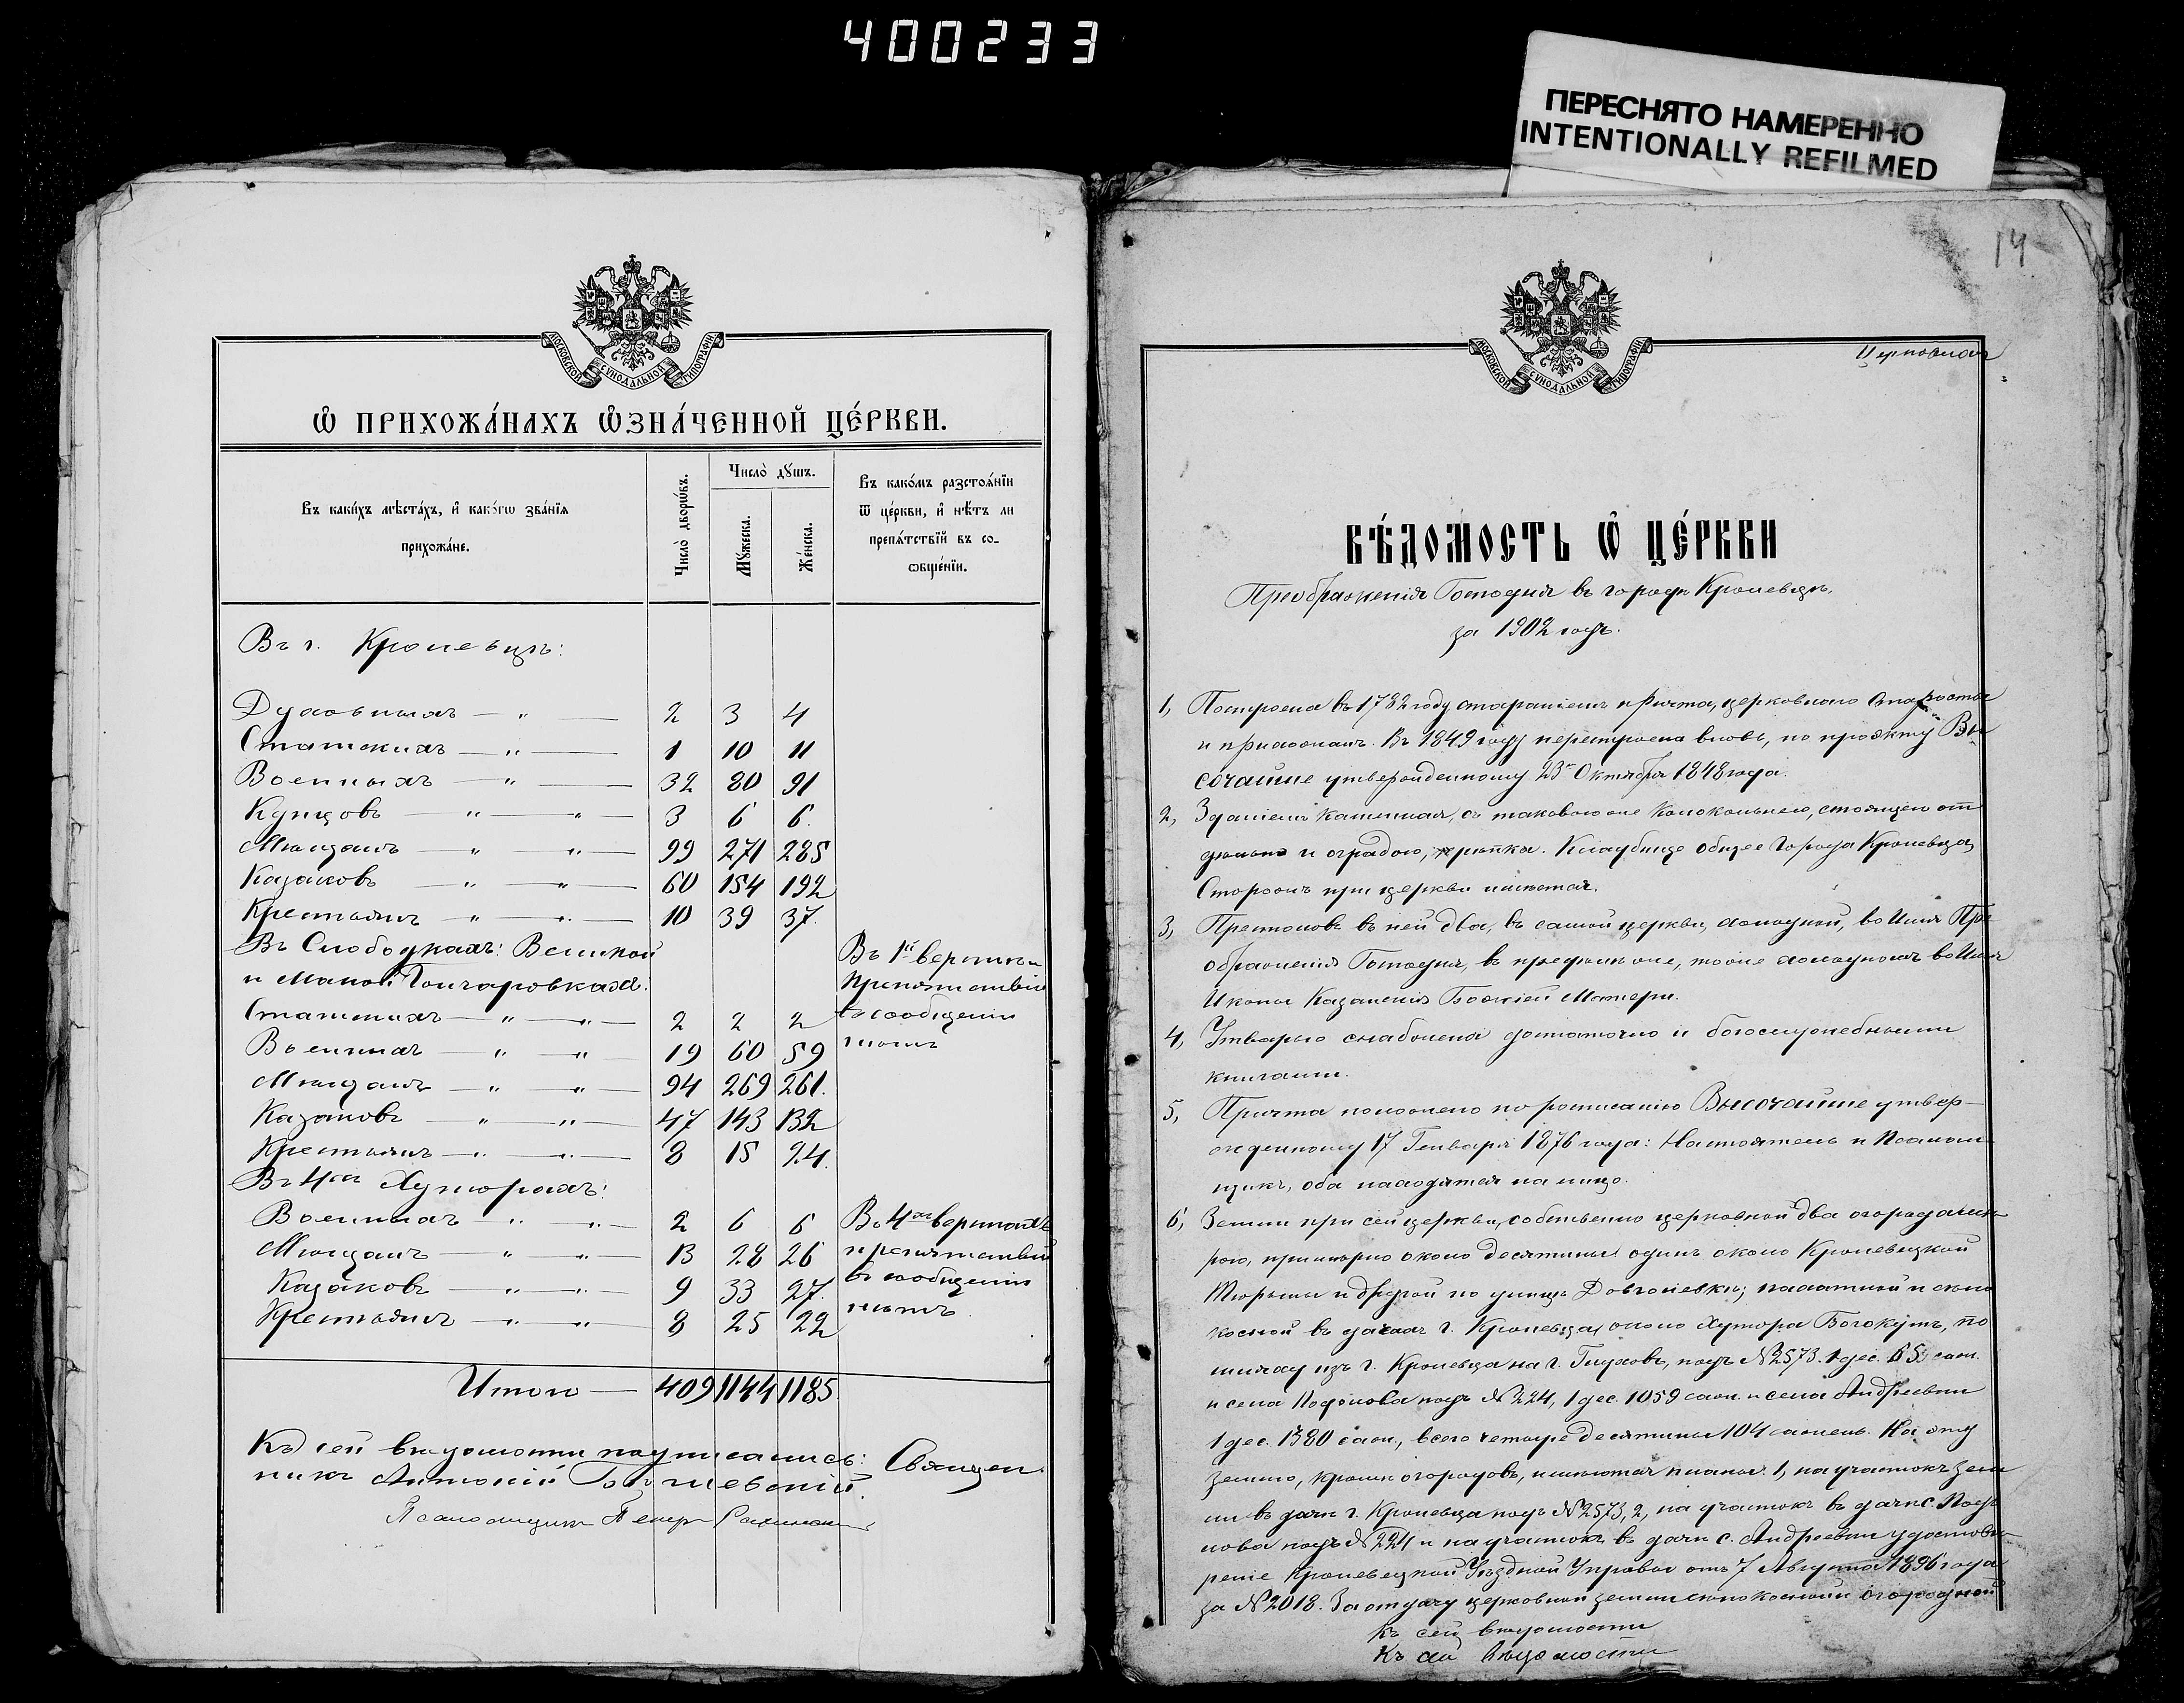 400233
ПЕРЕСНЯТО НАМЕРЕННО
INTENTIONALLY REFILMED
МОСКОВСКОЙ СѴНОДАЛЬНОЙ ТИПОГРАФІИ
Ѽ ПРИХОЖА́НАХЪ Ѡ҆ЗНА́ЧЕННОЙ ЦЕ́РКВИ.
Въ каки́хъ мѣста́хъ, и҆ како́гѡ зва́нїѧ прихожа́не.
Число̀ дворѡ́въ.
Число̀ дꙋшъ.
Мꙋ́жеска.
Же́нска.
Въ како́мъ разстоѧ́нїи
ѿ це́ркви, и҆ нѣ́тъ ли
препѧ́тствїй въ со-
ѻбще́нїи.
Въ г. Кролевцѣ:
Духовныхъ — " — 2 3 4
Статскихъ — " — 1 10 11
Военныхъ — " — 32 80 91
Купцовъ — " — " — 3 6 6.
Мѣщанъ — " — " — 99 271 285
Казаковъ — " — " — 60 154 192
Крестьянъ — " — " — 10 39 37.
Въ Слободкахъ: Великой
и Малой Гончаровкахъ.
Статскихъ — " — " — 2 2 2
Военныхъ — " — " — 19 60 59
Мѣщанъ — " — " — 94 269 261.
Казаковъ — " — " — 47 143 132
Крестьянъ — " — " — 8 15 24.
Въ 1й верстѣ и
препятствій
въ сообщеніи
нѣтъ
Въ 4хъ Хуторахъ:
Военныхъ — " — " — 2 6 6
Мѣщанъ — " — " — 13 28 26
Казаковъ — " — " — 9 33 27.
Крестьянъ — " — " — 8 25 22
Въ 4хъ верстахъ
препятствій
въ сообщеніи
нѣтъ.
Итого — 409 1144 1185.
Къ сей вѣдомости подписались: Священ-
никъ Антоній
Псаломщикъ Петръ
14
Церковная
МОСКОВСКОЙ СѴНОДАЛЬНОЙ ТИПОГРАФІИ
ВѢ́ДОМОСТЬ Ѽ ЦЕ́РКВИ
Преображенія Господня въ городѣ Кролевцѣ,
за 1902 годъ.
1, Построена въ 1782 году стараніемъ причта, церковнаго старосты
и прихожанъ. Въ 1849 году перестроена вновь, по проэкту Вы-
сочайше утвержденному 23го Октября 1848 года.
2, Зданіемъ каменная, съ таковою же колокольнею, стоящею от
дѣльно и оградою, крѣпка. Кладбище общее Города Кролевца,
Сторожъ при церкви имѣется.
3, Престоловъ въ ней два, въ самой церкви, холодной, во Имя Пре
ображенія Господня, въ придѣлѣ же, тоже холодномъ во Имя
Иконы Казанскія Божіей Матери.
4, Утварью снабжена достаточно и богослужебными
книгами.
5, Причта положено по росписанію Высочайше утвер-
жденному 17 Генваря 1876 года: Настоятель и Псалом-
щикъ, оба находятся на лицо.
6, Земли при сей церкви, собственно церковной два огорода мѣ-
рою, примѣрно около десятины: одинъ около Кролевецкой
Тюрьмы и другой по улицѣ Довголевкѣ; пахатной и сѣно
косной въ дачахъ г. Кролевца, около Хутора Богокутъ, по
шляху изъ г. Кролевца на г. Глуховъ, подъ №2573. 1 дес. саж.
и села Подолова подъ № 224, 1 дес. 1059 саж. и села Андреевки
1 дес. 1380 саж., всего четыре десятины 104 сажень. На эту
землю, кромѣ огородовъ, имѣются планы: 1, на участокъ зем
ли въ дачѣ г. Кролевца подъ №2573, 2, на участокъ въ дачѣ с. Подо
лова подъ №224 и на участокъ въ дачѣ с. Андреевки удостовѣ-
реніе Кролевецкой Уѣздной Управы отъ 7 Августа 1896 года
за №2018. За отдачу церковной земли сѣнокосной и огородной
Къ сей вѣдомости
Къ сей вѣдомости